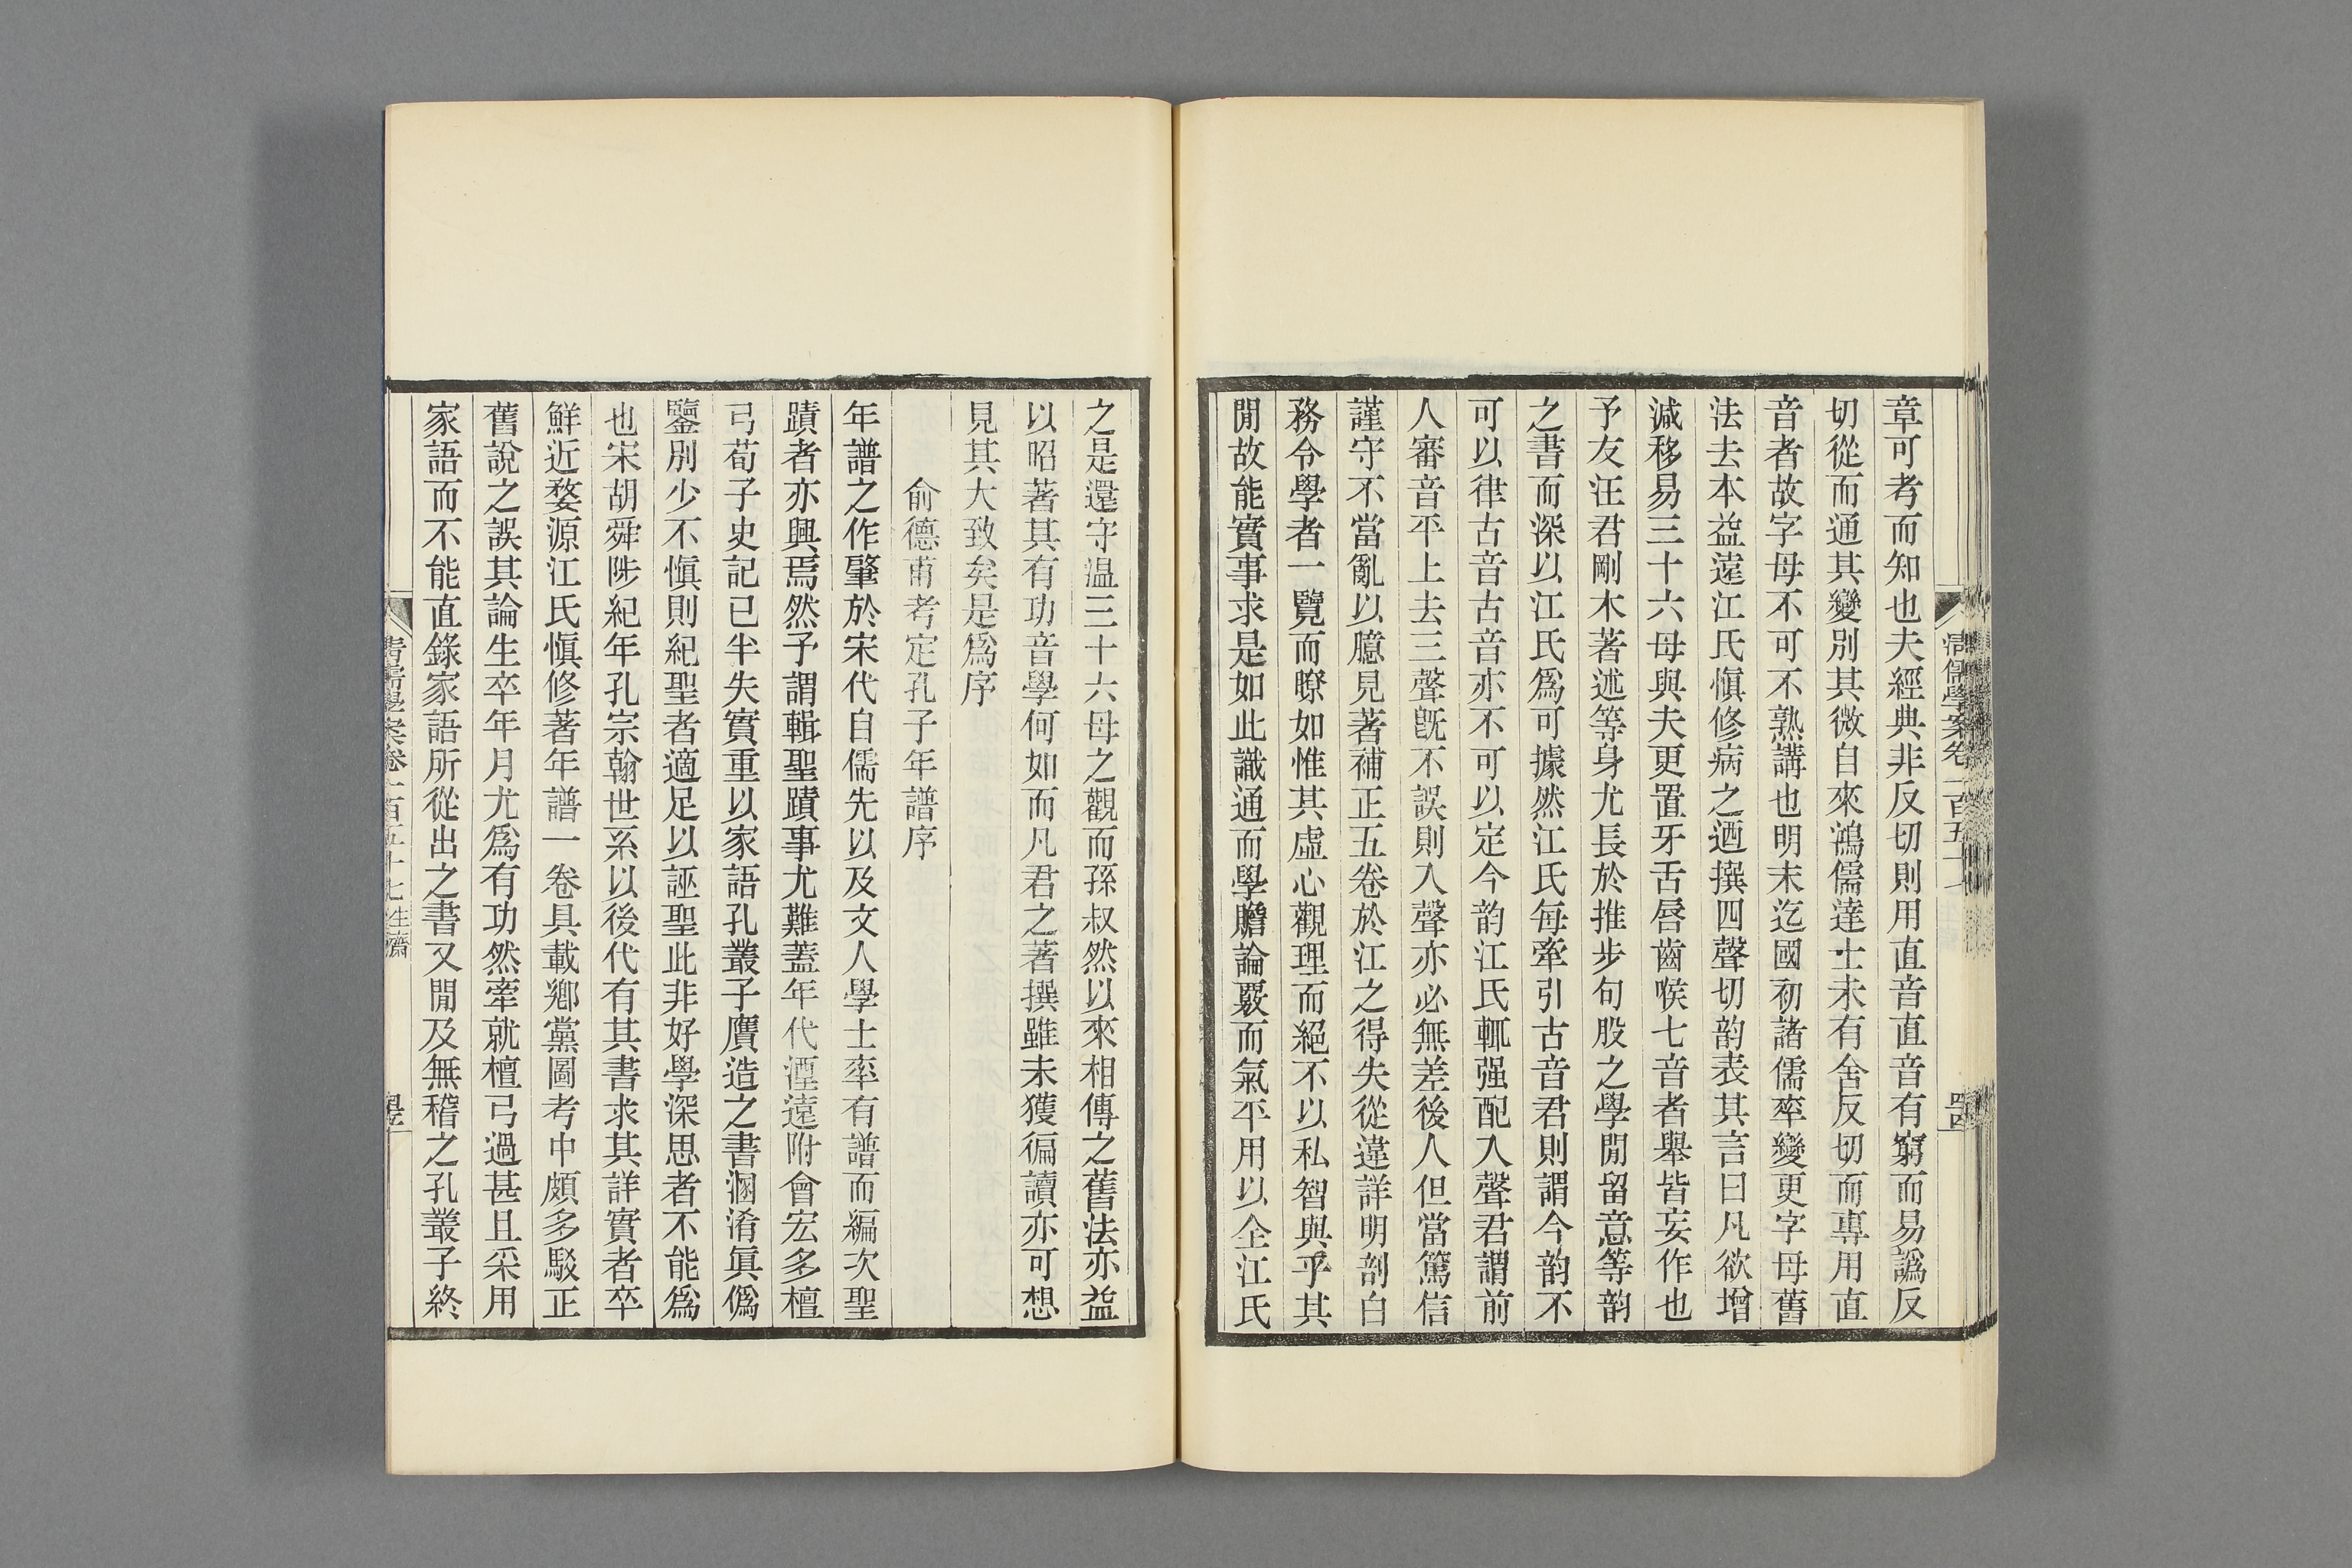 清儒學案卷一百五十七
四十四
章可考而知也夫經典非反切則用直音直音有窮而易譌反
切從而通其變別其微自來鴻儒達士未有舍反切而專用直
音者故字母不可不熟講也明末迄國初諸儒率變更字母舊
法去本益遠江氏愼修病之迺撰四聲切韵表其言曰凡欲增
減移易三十六母與夫更置牙舌唇齒喉七音者舉皆妄作也
予友汪君剛木著述等身尤長於推步句股之學閒留意等韵
之書而深以江氏爲可據然江氏每牽引古音君則謂今韵不
可以律古音古音亦不可以定今韵江氏輒强配入聲君謂前
人審音平上去三聲旣不誤則入聲亦必無差後人但當篤信
謹守不當亂以臆見著補正五卷於江之得失從違詳明剖白
務令學者一覽而瞭如惟其虛心觀理而絕不以私智與乎其
閒故能實事求是如此識通而學贍論覈而氣平用以仝江氏
之是還守温三十六母之觀而孫叔然以來相傳之舊法亦益
以昭著其有功音學何如而凡君之著撰雖未獲徧讀亦可想
見其大致矣是爲序
俞德甫考定孔子年譜序
年譜之作肇於宋代自儒先以及文人學士率有譜而編次聖
蹟者亦興焉然予謂輯聖蹟事尤難蓋年代湮遠附會宏多檀
弓荀子史記已半失實重以家語孔叢子贋造之書溷淆眞僞
鑒別少不愼則紀聖者適足以誣聖此非好學深思者不能爲
也宋胡舜陟紀年孔宗翰世系以後代有其書求其詳實者卒
鮮近婺源江氏愼修著年譜一卷具載鄉黨圖考中頗多駁正
舊說之誤其論生卒年月尤爲有功然牽就檀弓過甚且采用
家語而不能直錄家語所從出之書又閒及無稽之孔叢子終
清儒學案卷一百五十七 生齋